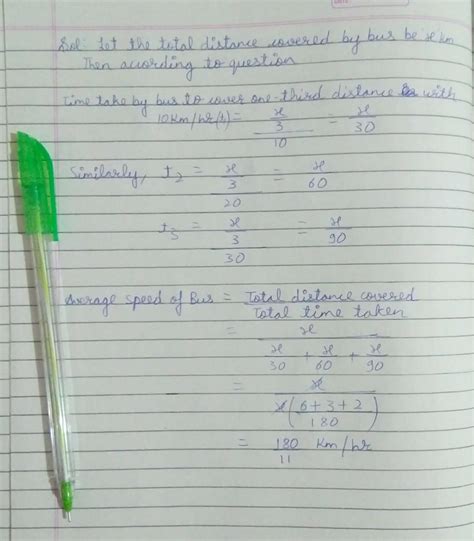 Sol: Let the total distance covered by bus be 'x' km
Then according to question
Time take by bus to cover one-third distance with
10 Km/hr (t₁) = x/3 / 10 = x/30
Similarly, t₂ = x/3 / 20 = x/60
t₃ = x/3 / 30 = x/90
Average speed of Bus = Total distance covered / Total time taken
= x / x/30 + x/60 + x/90
= x / x(6+3+2 / 180)
= 180/11 Km/hr